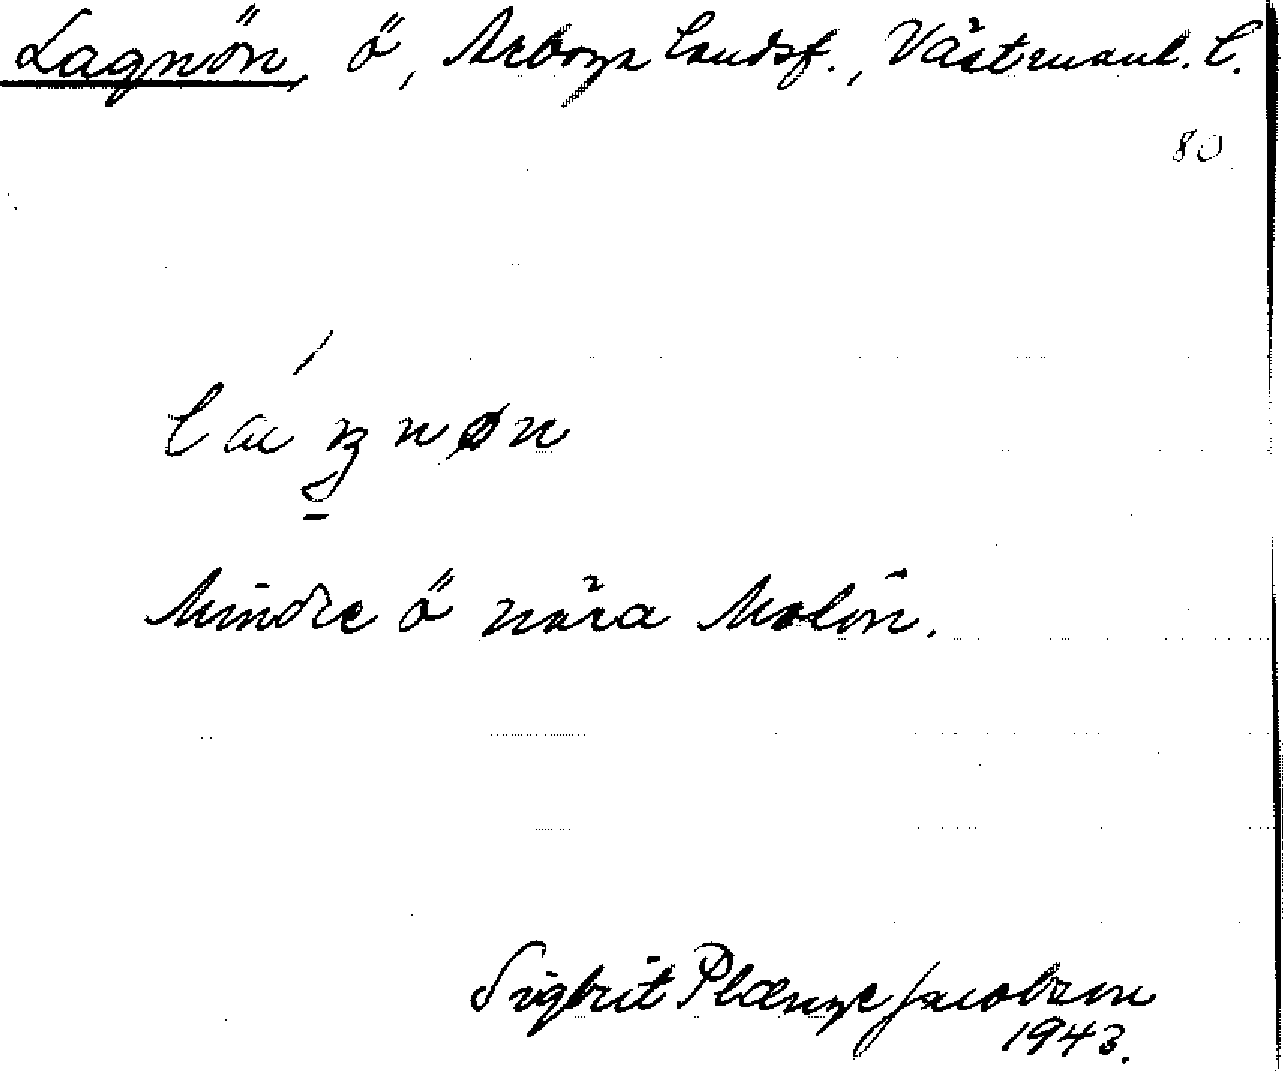 Lagnön, ö, Arboga landsf., Västmanl. l.
80
Mindre ö nära Malön.
Sigbrit Plænge Jacobson
1943.